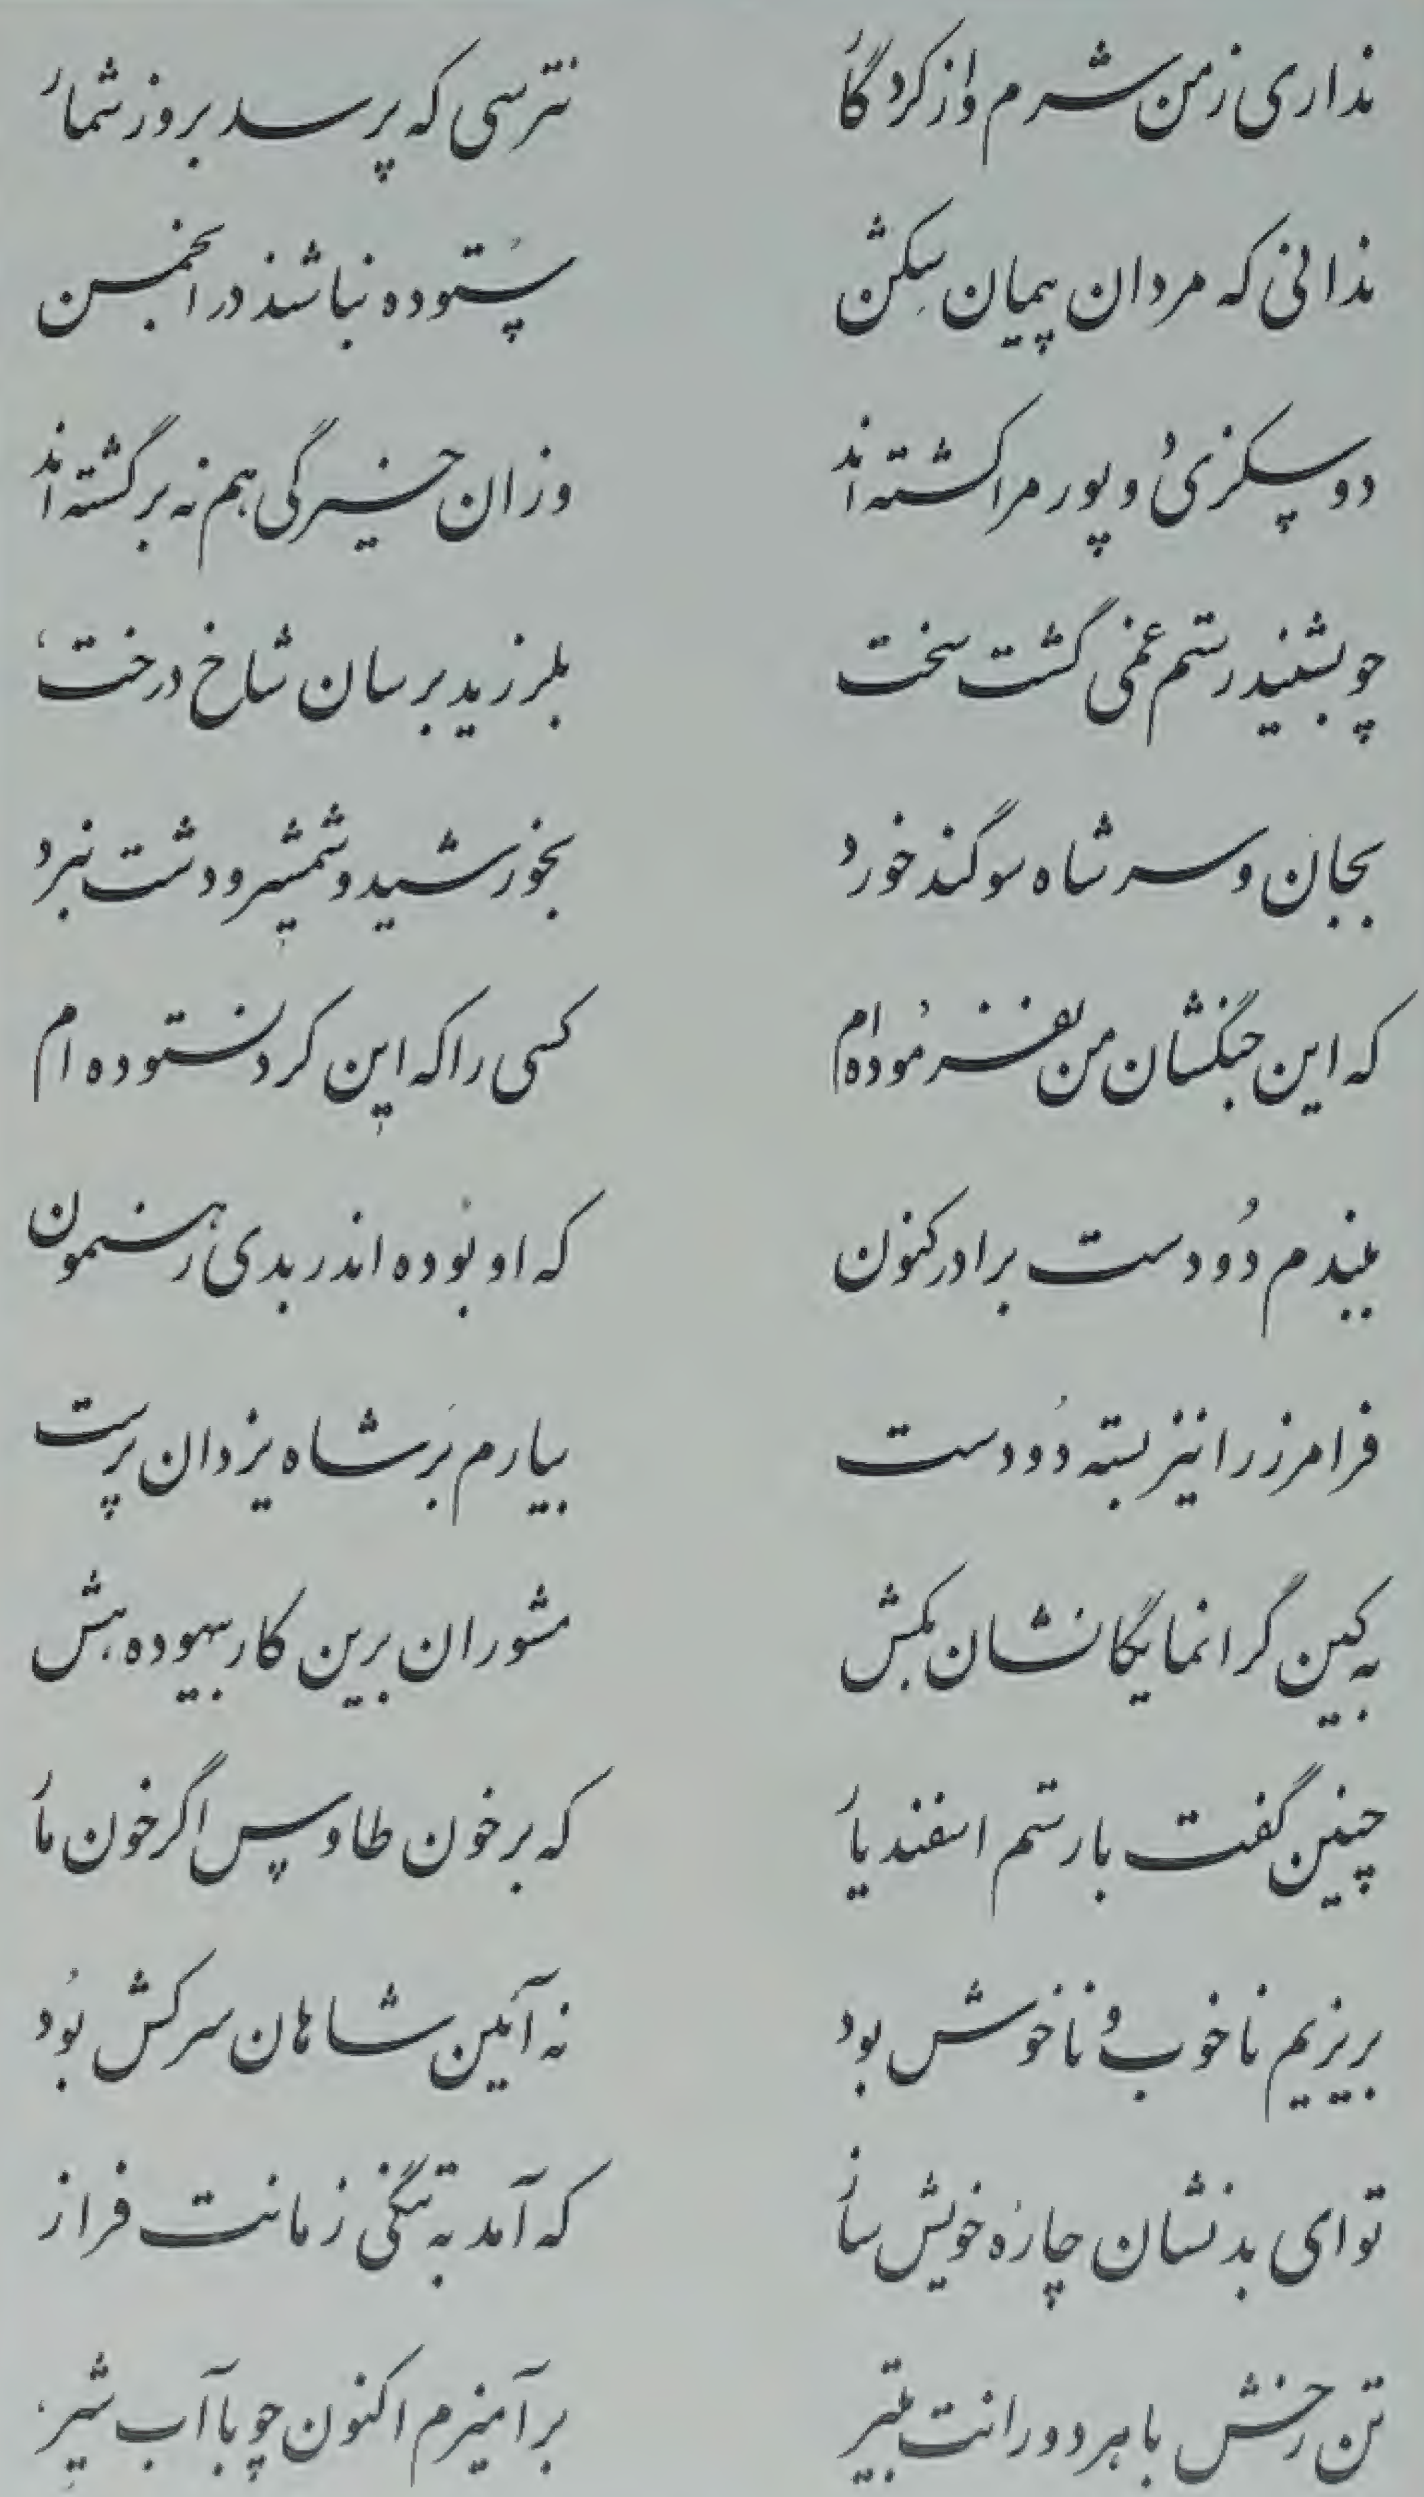 نداری ز من شرم و از کردگار نترسی که پرسد بروز شمار
ندانی که مردان پیمان شکن ستوده نباشند در انجمن
دو سگزی دو پور مرا کشته‌اند وزان خیرگی هم نه برگشته‌اند
چو بشنید رستم غمی گشت سخت بلرزید برسان شاخ درخت
بجان و سر شاه سوگند خورد بخورشید و شمشیر و دشت نبرد
که این جنگشان من نفرموده‌ام کسی را که این کرد نستوده‌ام
ببندم دو دست برادر کنون که او بوده اندر بدی رهنمون
فرامرز را نیز بسته دو دست بیارم بر شاه یزدان پرست
به کین گرانمایگانشان بکش مشوران برین کار بیهوده هش
چنین گفت با رستم اسفندیار که بر خون طاوس اگر خون مار
بریزیم ناخوب و ناخوش بود نه آئین شاهان سرکش بود
تو ای بدنشان چاره خویش ساز که آمد به تنگی زمانت فراز
تن رخش با هر دو رانت بتیر برآمیزم اکنون چو با آب شیر